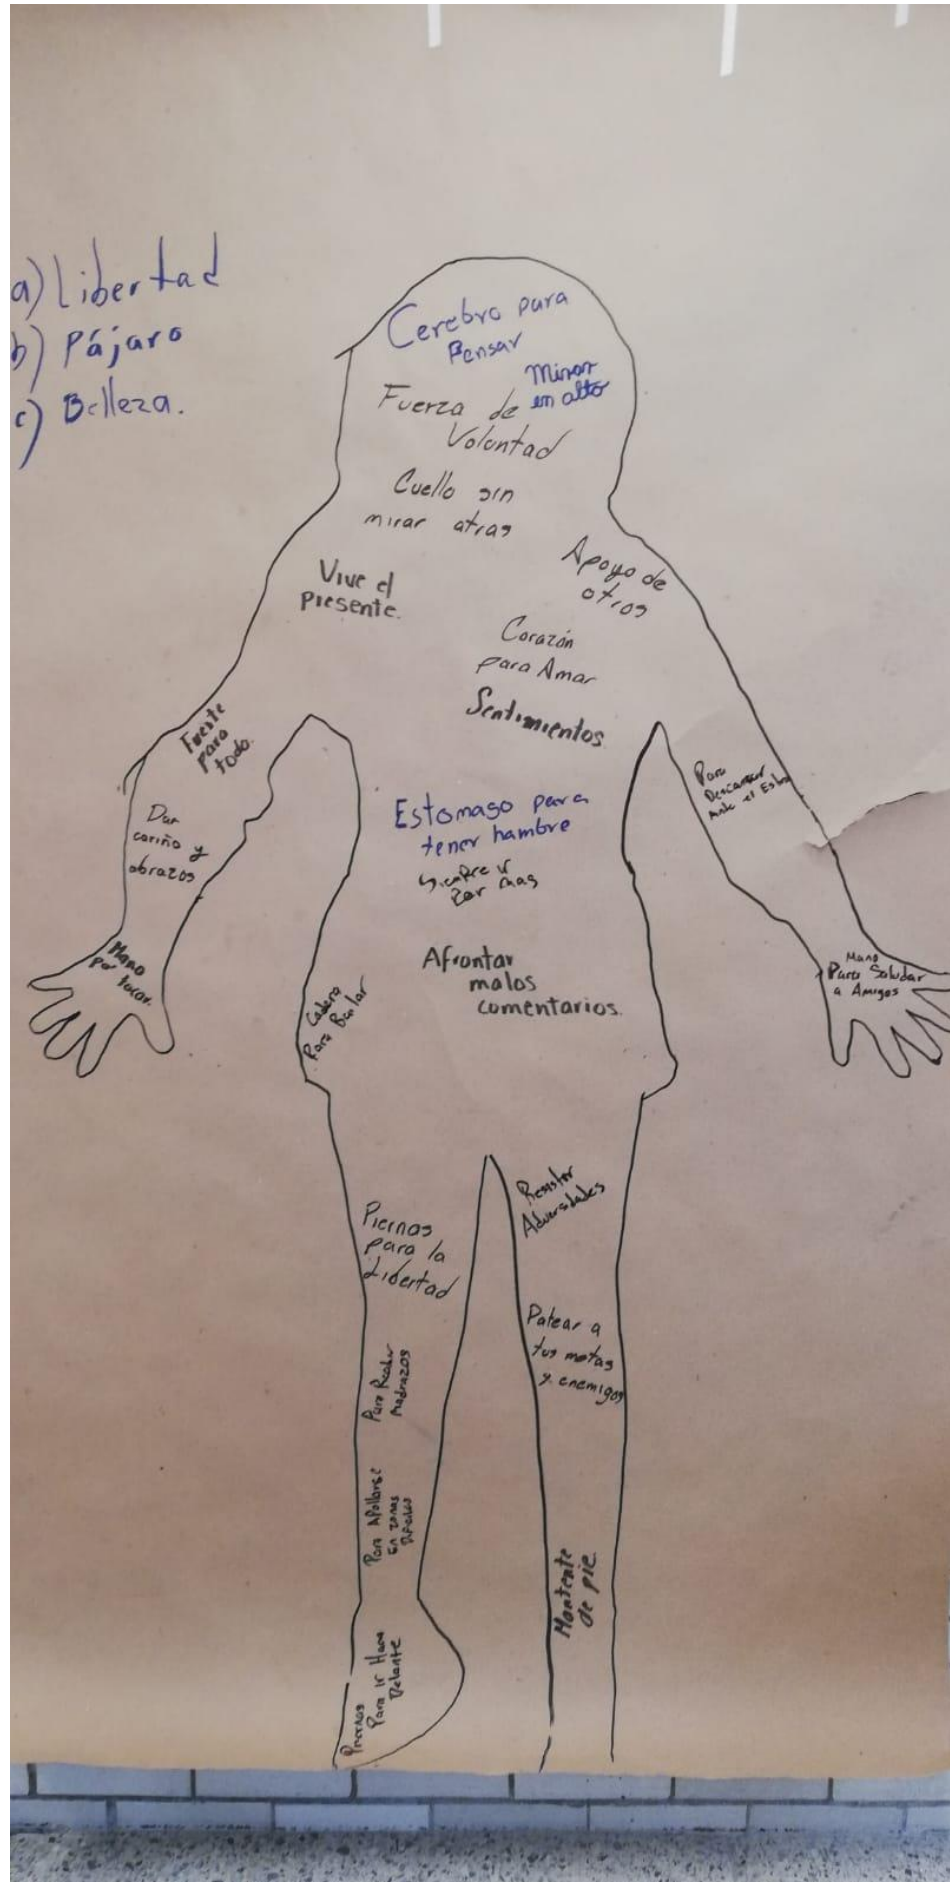 a) Libertad
b) Pájaro
c) Belleza.
Cerebro para
Pensar
Mirar
en alto
Fuerza de
Voluntad
Cuello sin
mirar atras
Vive el
presente.
Apoyo de
otros
Corazón
para Amar
Sentimientos
Fuerte
para
todo.
Dar
cariño y
abrazos
Mano
por tocar.
Para
Descansar
Ante el
Estomago para
tener hambre
Siempre ir
por mas
Afrontar
malos
comentarios.
Mano
Para Saludar
a Amigos
Cadera
Para Bailar
Resistir
Adversidades
Piernas
para la
Libertad
Patear a
tus metas
y enemigos
Para
Madrazos
Para Apollarse
En zonas
Mantente
de pie.
Piernas
Para Ir
Delante